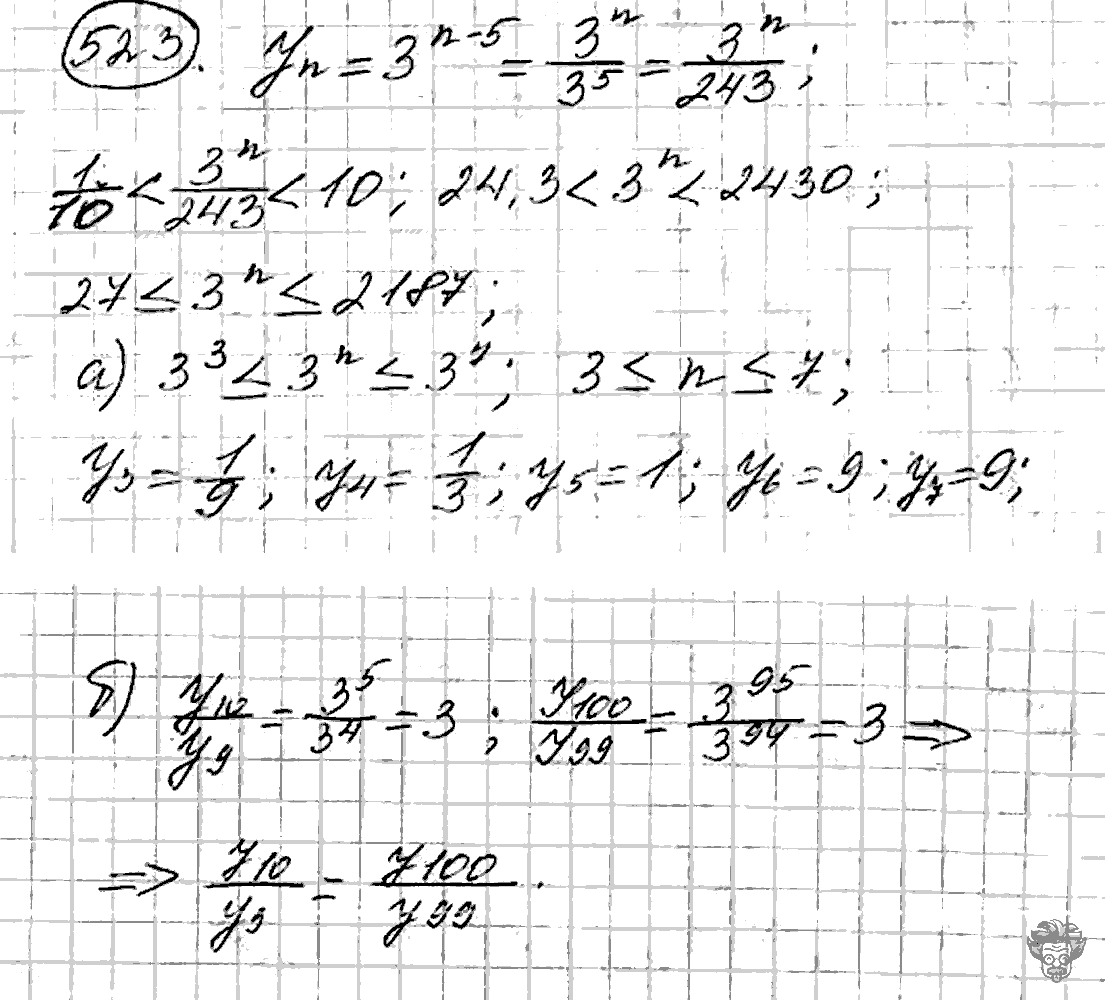 523. yₙ = 3ⁿ⁻⁵ = 3ⁿ/3⁵ = 3ⁿ/243;
1/10 < 3ⁿ/243 < 10; 24,3 < 3ⁿ < 2430;
27 ≤ 3ⁿ ≤ 2187;
а) 3³ ≤ 3ⁿ ≤ 3⁷; 3 ≤ n ≤ 7;
y₃ = 1/9; y₄ = 1/3; y₅ = 1; y₆ = 9; y₇ = 9;
б) y₁₀/y₉ = 3⁵/3⁴ = 3; y₁₀₀/y₉₉ = 3⁹⁵/3⁹⁴ = 3 ⇒
⇒ y₁₀/y₉ = y₁₀₀/y₉₉.